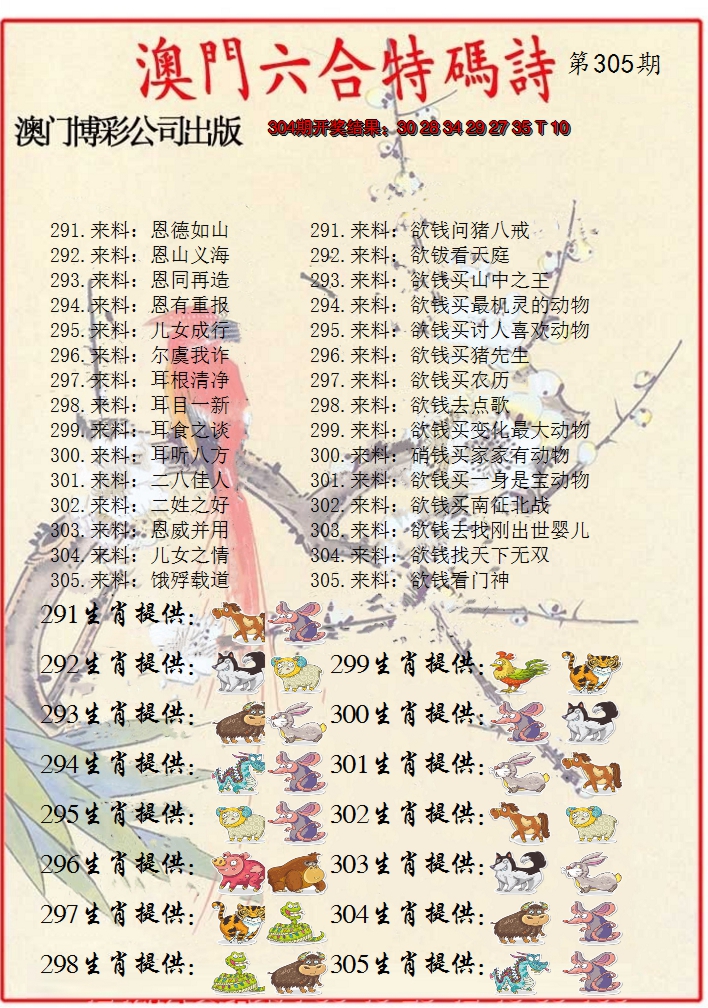 澳門六合特碼詩 第305期
澳门博彩公司出版 304期开奖结果：30 28 34 29 27 35 T 10
291.来料：恩德如山 291.来料：欲钱问猪八戒
292.来料：恩山义海 292.来料：欲钹看天庭
293.来料：恩同再造 293.来料：欲钱买山中之王
294.来料：恩有重报 294.来料：欲钱买最机灵的动物
295.来料：儿女成行 295.来料：欲钱买讨人喜欢动物
296.来料：尔虞我诈 296.来料：欲钱买猪先生
297.来料：耳根清净 297.来料：欲钱买农历
298.来料：耳目一新 298.来料：欲钱去点歌
299.来料：耳食之谈 299.来料：欲钱买变化最大动物
300.来料：耳听八方 300.来料：硝钱买家家有动物
301.来料：二八佳人 301.来料：欲钱买一身是宝动物
302.来料：二姓之好 302.来料：欲钱买南征北战
303.来料：恩威并用 303.来料：欲钱去找刚出世婴儿
304.来料：儿女之情 304.来料：欲钱找天下无双
305.来料：饿殍载道 305.来料：欲钱看门神
291生肖提供：
292生肖提供： 299生肖提供：
293生肖提供： 300生肖提供：
294生肖提供： 301生肖提供：
295生肖提供： 302生肖提供：
296生肖提供： 303生肖提供：
297生肖提供： 304生肖提供：
298生肖提供： 305生肖提供：